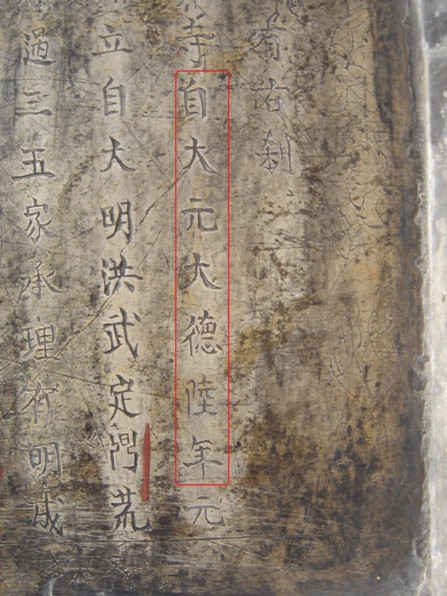 有古刹
寺自大元大德陸年元
立自大明洪武定鼎荒
過三五家承理有明成